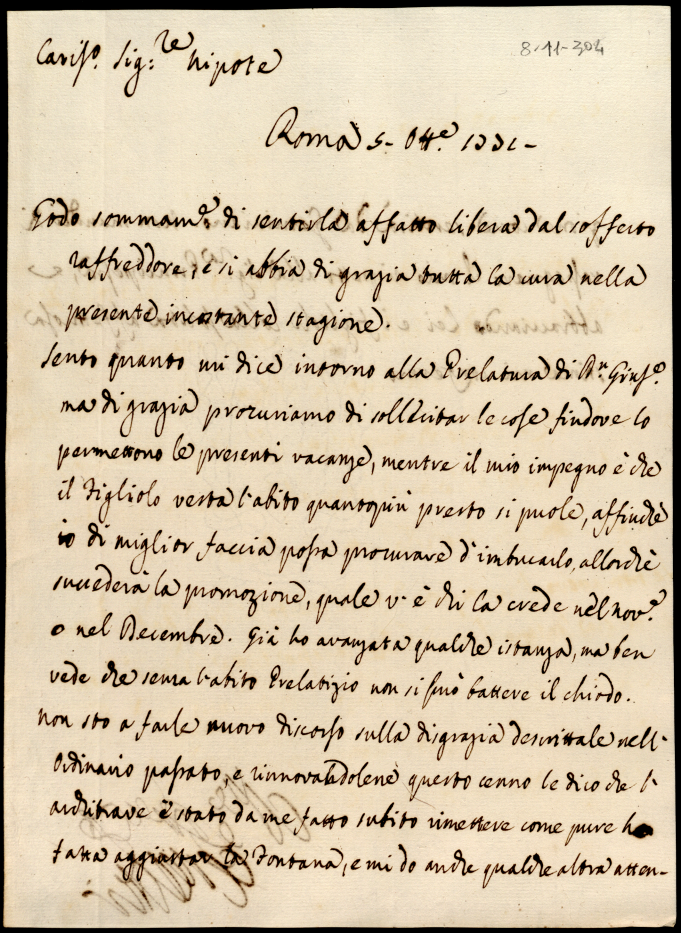 8-11-304
Cariss.o Sig.re Nipote
Roma 5. Ott.e
Godo sommam.te di sentirla affatto libera dal sofferto
raffreddore, e si abbia di grazia tutta la cura nella
presente incostante stagione.
Sento quanto mi dice intorno alla Prelatura di D.n Gius.e
ma di grazia procuriamo di sollecitar le cose findove lo
permettono le presenti vacanze, mentre il mio impegno è che
il Figliolo vesta l'abito quantopiù presto si puole, affinchè
io di miglior faccia possa procurare d'imbucarlo, allorchè
succederà la promozione, quale v'è chi la crede nel nov.e
o nel Decembre. Già ho avanzata qualche istanza, ma ben
vede che senza l'abito Prelatizio non si può battere il chiodo.
Non sto a farle nuovo discorso sulla disgrazia descrittale nell'
Ordinario passato, e rinnovandolene questo cenno le dico che l'
architrave è stato da me fatto subito rimettere come pure ho
fatta aggiustar la Fontana, e mi do anche qualche altra atten-